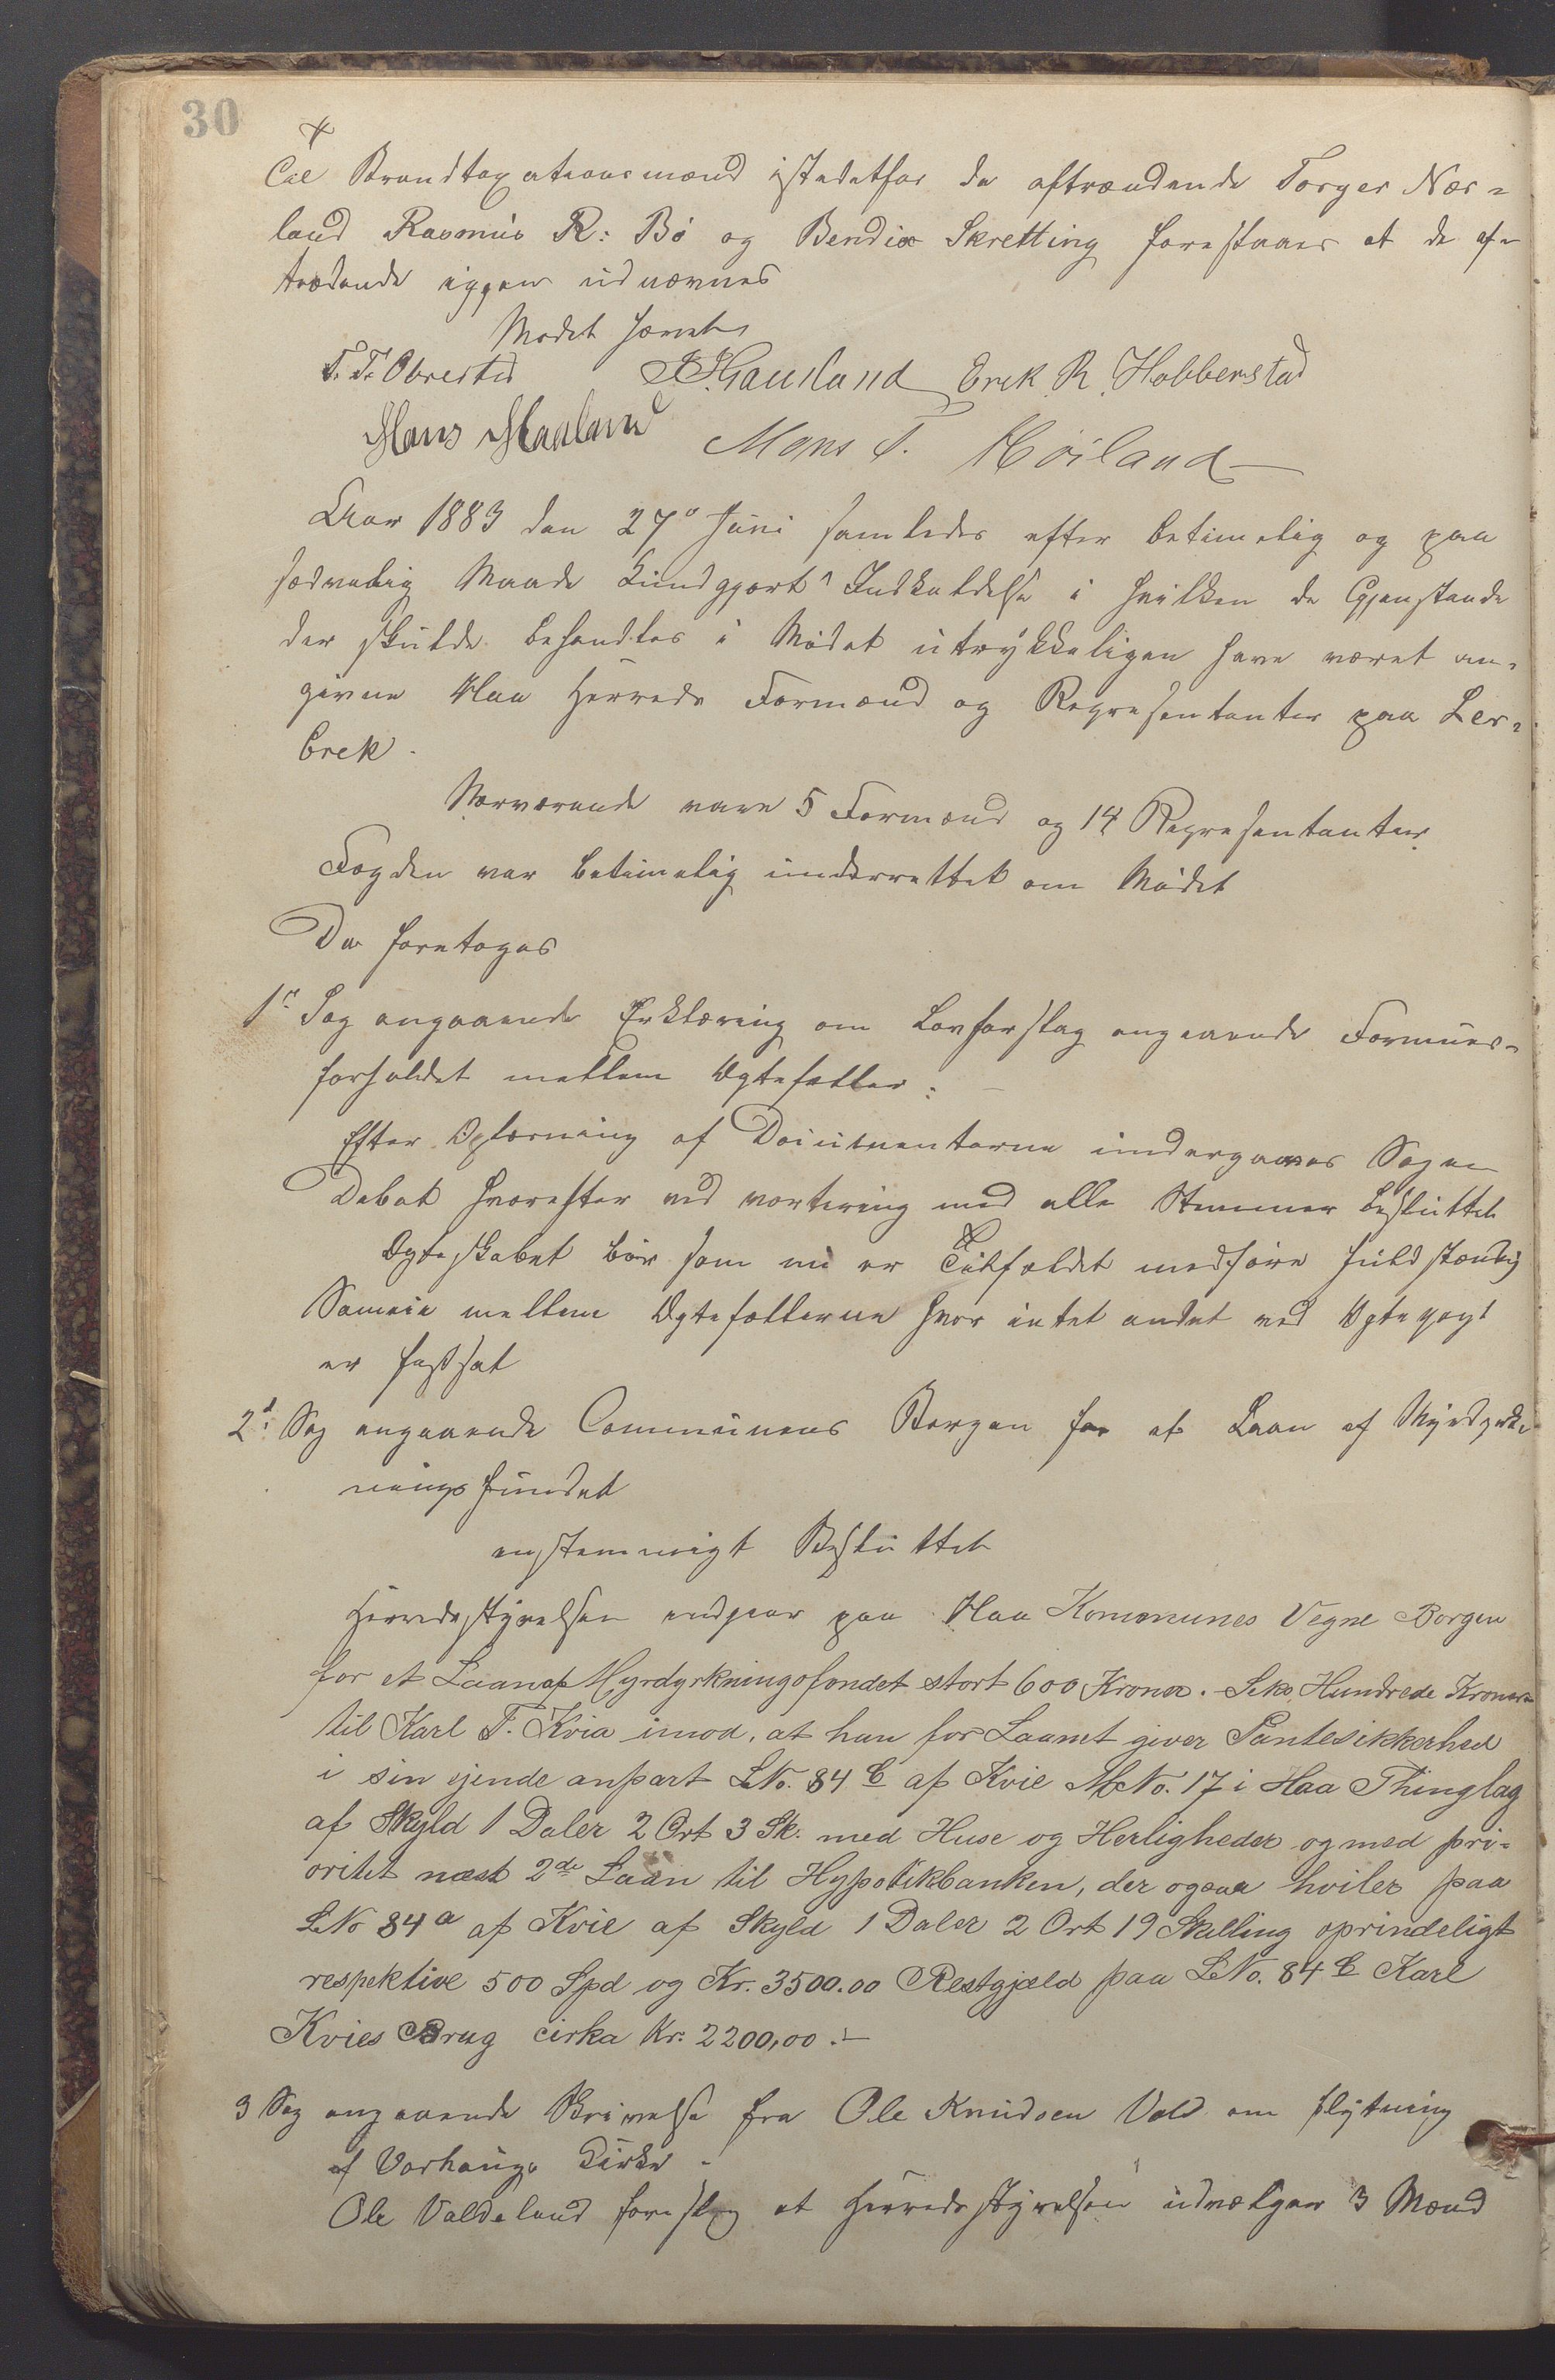 30
Til Brandtaxationsmænd istedetfor de aftrædende Torger Nær=
land Rasmus R: Bø og Bendix Skretting foreslaaes at de af=
trædende igjen udnævnes
Mødet hævet
T. T. Obrestad Hauland Erik R. Hobberstad
Hans Haaland Mons T. Høiland
Aar 1883 den 27de Juni samledes efter betimelig og paa
sædvanlig Maade Kundgjort Indkaldelse i hvilken de Gjenstande
der skulde behandles i Mødet utrykkeligen have været an=
givne Haa Herreds Formænd og Repræsentanter paa Ler=
brek.
Nærværende vare 5 Formænd og 14 Repræsentanter.
Fogden var betimelig underrettet om Mødet
Da foretoges
1. Sag angaaende Erklæring om Lovforslag angaaende Formues=
forholdet mellem Ægtefæller: –
Efter Oplæsning af Documenterne undergaves Sagen
Debat hvorefter ved vortering med alle Stemmer besluttet
Ægteskabet bør som nu er Tilfældet medføre fuldstændig
Sameie mellem Ægtefællerne hvor intet andet ved Ægtepagt
er fastsat
2d: Sag angaaende Communens Borgen for et Laan af Myrdyrk=
ningsfondet
enstemmigt Besluttet
Herredsstyrelsen indgaar paa Haa Kommunes Vegne Borgen
for et Laan af Myrdyrkningsfondet stort 600 Kroner. Seks Hundrede Kroner
til Karl T. Kvia imod, at han for Laanet giver Pantesikkerhed
i sin ejende anpart LNo. 84 b af Kvie MNo. 17 i Haa Thinglag
af Skyld 1 Daler 2 Ort 3 Sk. med Huse og Herligheder og med pri=
oritet næst 2de Laan til Hypotekbanken, der ogsaa hviler paa
LNo 84 a af Kvie af Skyld 1 Daler 2 Ort 19 Skilling oprindeligt
respektive 500 Spd og Kr. 3500.00 Restgjæld paa LNo. 84 b Karl
Kvies Brug cirka Kr: 2200,00. –
3 Sag angaaende Skrivelse fra Ole Knudsen Vold om flytning
af Varhaugs Kirke –
Ole Valdeland foreslog at Herredsstyrelsen udvælger 3 Mænd